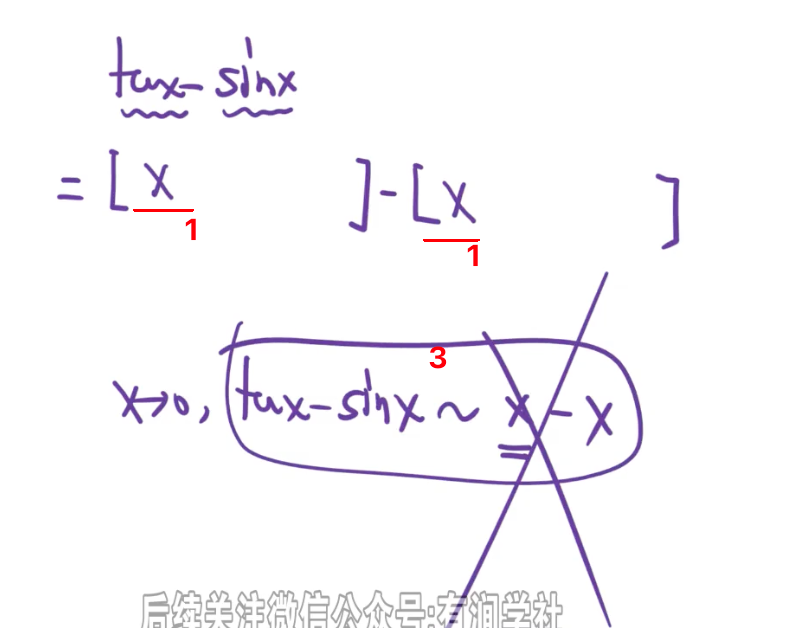 tanx - sinx
= [ x ] - [ x ]
1 1
3
x→0, tanx - sinx ~ x - x
后续关注微信公众号:有润学社